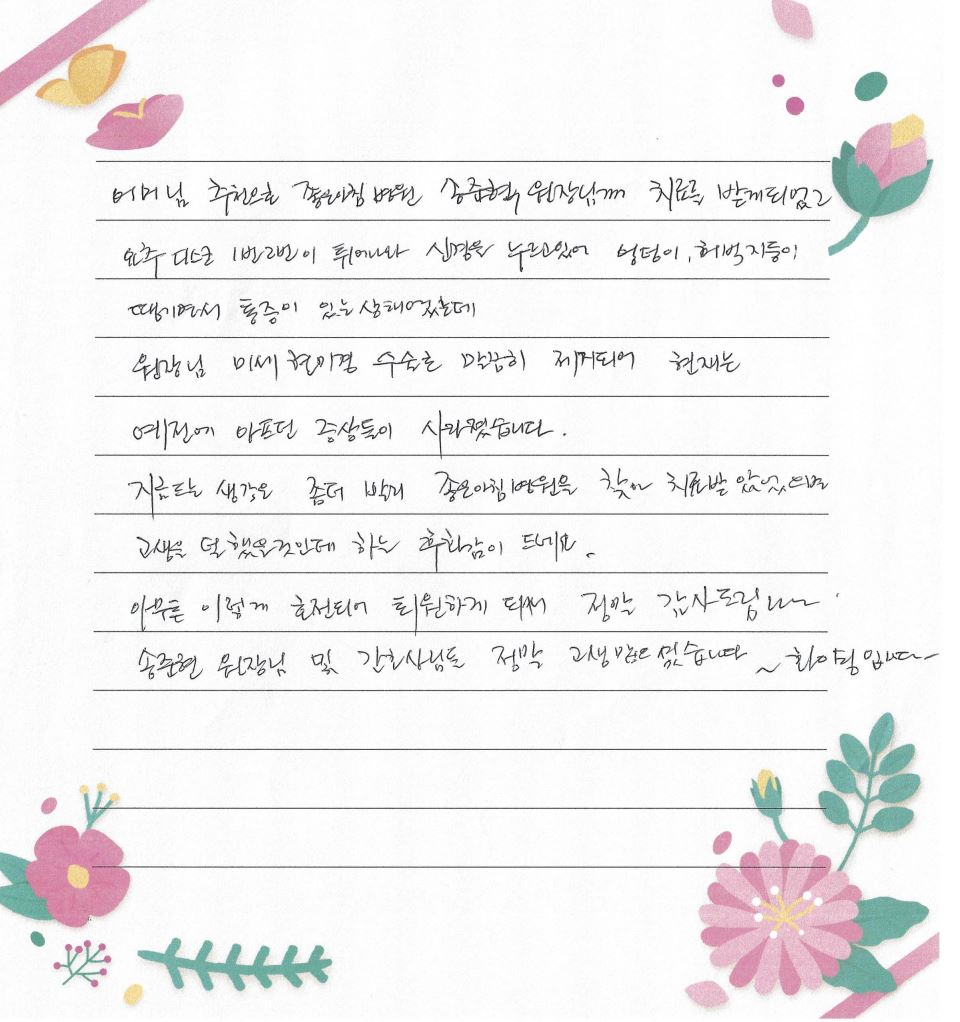 어머님 추천으로 좋은아침병원 송준혁 원장님께 치료를 받게되었고
요추 디스크 1번2번이 튀어나와 신경을 누르고있어 엉덩이, 허벅지등이
땡기면서 통증이 있는상태였는데
원장님 미세현미경 수술로 말끔히 제거되어 현재는
예전에 아프던 증상들이 사라졌습니다.
지금드는 생각은 좀더 빨리 좋은아침병원을 찾아 치료받았었으면
고생을 덜했을것인데 하는 후회감이 드네요.
아무튼 이렇게 호전되어 퇴원하게 되서 정말 감사드림니다
송준현 원장님 및 간호사님들 정말 고생많으셨습니다 ~ 화이팅입니다~